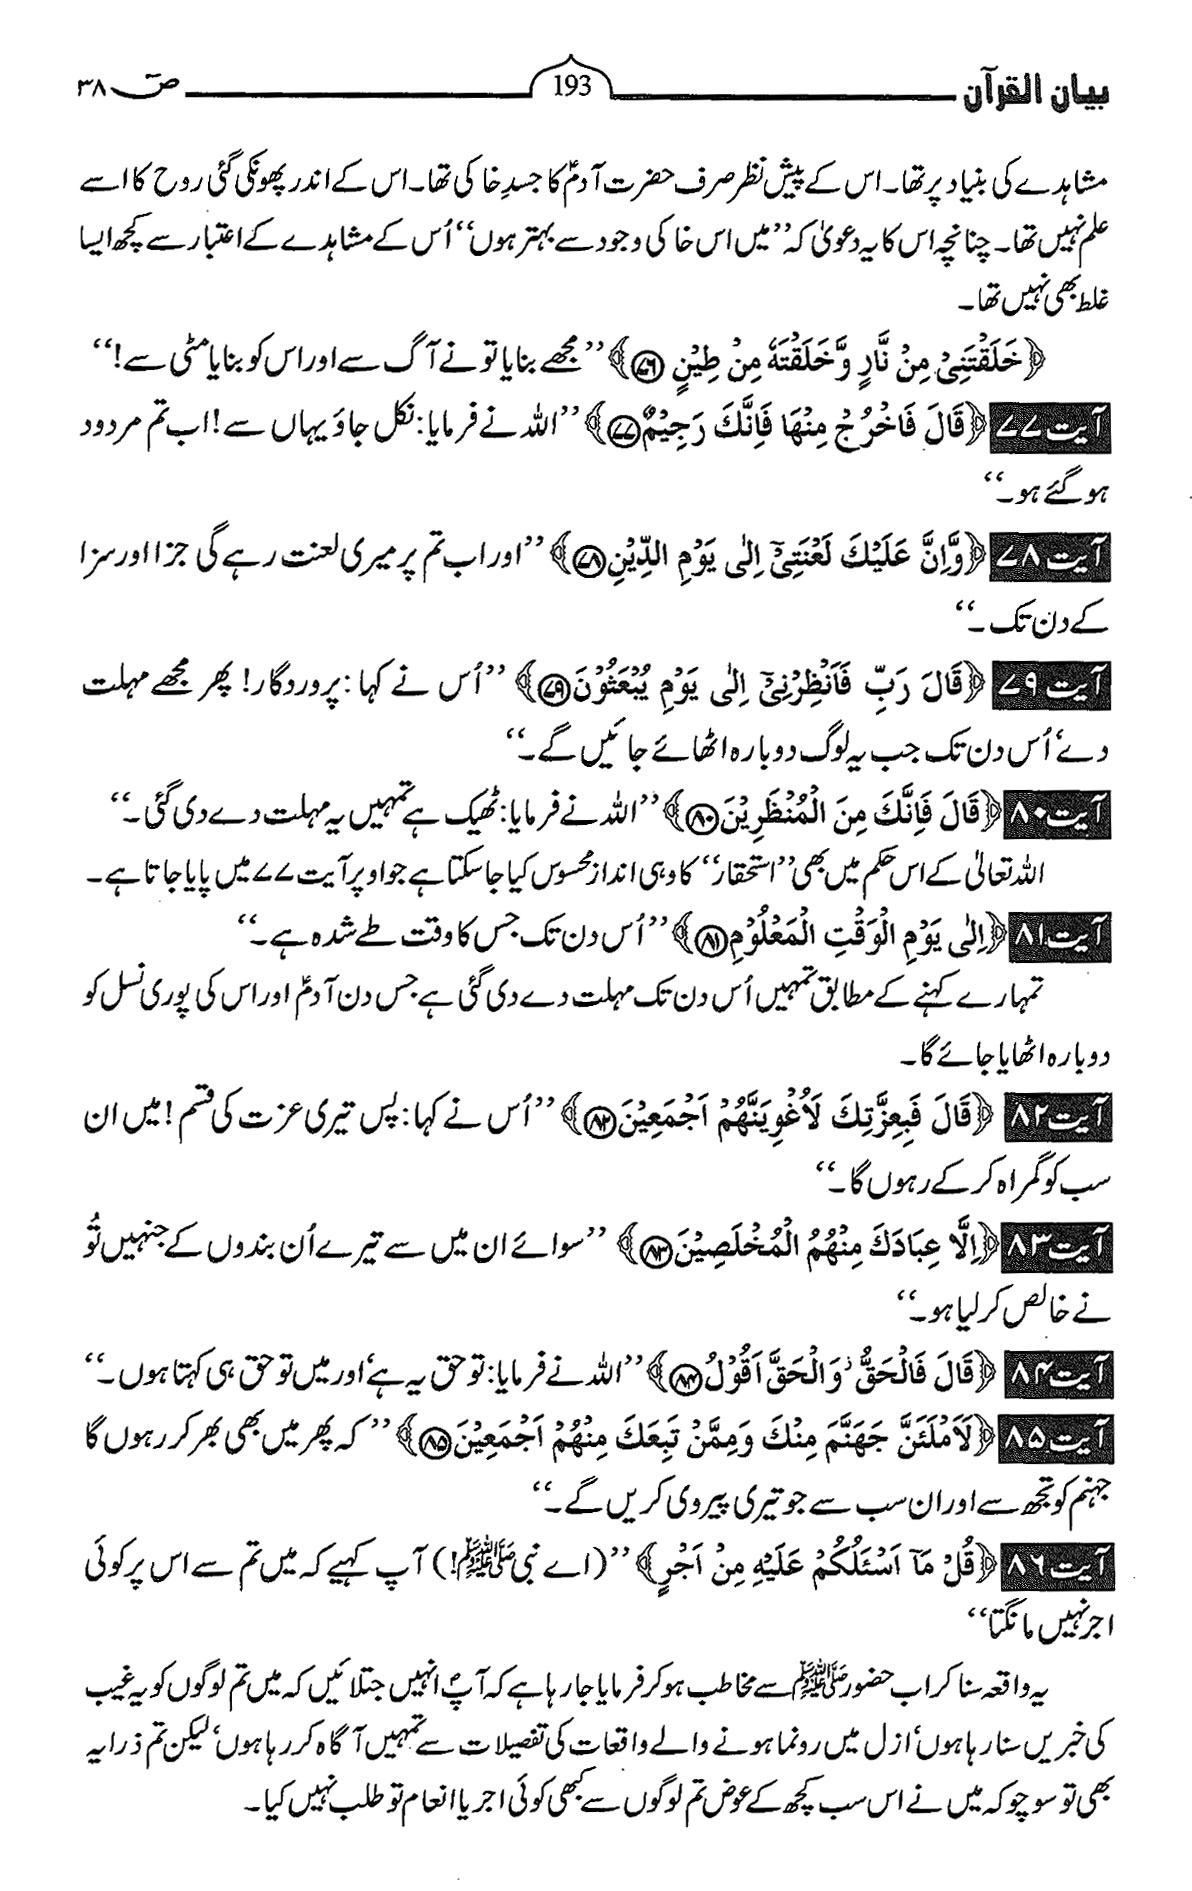 بیان القرآن 193 صٓ ۳۸
مشاہدے کی بنیاد پر تھا۔ اس کے پیش نظر صرف حضرت آدمؑ کا جسدِ خاکی تھا۔ اس کے اندر پھونکی گئی روح کا اسے
علم نہیں تھا۔ چنانچہ اس کا یہ دعویٰ کہ ’’میں اس خاکی وجود سے بہتر ہوں‘‘ اُس کے مشاہدے کے اعتبار سے کچھ ایسا
غلط بھی نہیں تھا۔
﴿خَلَقْتَنِیْ مِنْ نَّارٍ وَّخَلَقْتَهٗ مِنْ طِیْنٍ ﴿۷۶﴾﴾ ’’مجھے بنایا تو نے آگ سے اور اس کو بنایا مٹی سے!‘‘
آیت ۷۷ ﴿قَالَ فَاخْرُجْ مِنْهَا فَاِنَّكَ رَجِیْمٌ ﴿۷۷﴾﴾ ’’اللہ نے فرمایا: نکل جاؤ یہاں سے! اب تم مردود
ہو گئے ہو۔‘‘
آیت ۷۸ ﴿وَّاِنَّ عَلَیْكَ لَعْنَتِیْٓ اِلٰی یَوْمِ الدِّیْنِ ﴿۷۸﴾﴾ ’’اور اب تم پر میری لعنت رہے گی جزا اور سزا
کے دن تک۔‘‘
آیت ۷۹ ﴿قَالَ رَبِّ فَاَنْظِرْنِیْٓ اِلٰی یَوْمِ یُبْعَثُوْنَ ﴿۷۹﴾﴾ ’’اُس نے کہا: پروردگار! پھر مجھے مہلت
دے‘ اُس دن تک جب یہ لوگ دوبارہ اٹھائے جائیں گے۔‘‘
آیت ۸۰ ﴿قَالَ فَاِنَّكَ مِنَ الْمُنْظَرِیْنَ ﴿۸۰﴾﴾ ’’اللہ نے فرمایا: ٹھیک ہے تمہیں یہ مہلت دے دی گئی۔‘‘
اللہ تعالیٰ کے اس حکم میں بھی ’’استحقار‘‘ کا وہی انداز محسوس کیا جا سکتا ہے جو اوپر آیت ۷۷ میں پایا جاتا ہے۔
آیت ۸۱ ﴿اِلٰی یَوْمِ الْوَقْتِ الْمَعْلُوْمِ ﴿۸۱﴾﴾ ’’اُس دن تک جس کا وقت طے شدہ ہے۔‘‘
تمہارے کہنے کے مطابق تمہیں اُس دن تک مہلت دے دی گئی ہے جس دن آدمؑ اور اس کی پوری نسل کو
دوبارہ اٹھایا جائے گا۔
آیت ۸۲ ﴿قَالَ فَبِعِزَّتِكَ لَاُغْوِیَنَّهُمْ اَجْمَعِیْنَ ﴿۸۲﴾﴾ ’’اُس نے کہا: پس تیری عزت کی قسم! میں ان
سب کو گمراہ کر کے رہوں گا۔‘‘
آیت ۸۳ ﴿اِلَّا عِبَادَكَ مِنْهُمُ الْمُخْلَصِیْنَ ﴿۸۳﴾﴾ ’’سوائے ان میں سے تیرے اُن بندوں کے جنہیں تُو
نے خالص کر لیا ہو۔‘‘
آیت ۸۴ ﴿قَالَ فَالْحَقُّ ۫ وَالْحَقَّ اَقُوْلُ ﴿۸۴﴾﴾ ’’اللہ نے فرمایا: تو حق یہ ہے‘ اور میں تو حق ہی کہتا ہوں۔‘‘
آیت ۸۵ ﴿لَاَمْلَئَنَّ جَهَنَّمَ مِنْكَ وَمِمَّنْ تَبِعَكَ مِنْهُمْ اَجْمَعِیْنَ ﴿۸۵﴾﴾ ’’کہ پھر میں بھی بھر کر رہوں گا
جہنم کو تجھ سے اور ان سب سے جو تیری پیروی کریں گے۔‘‘
آیت ۸۶ ﴿قُلْ مَآ اَسْئَلُكُمْ عَلَیْهِ مِنْ اَجْرٍ﴾ ’’(اے نبیﷺ!) آپ کہیے کہ میں تم سے اس پر کوئی
اجر نہیں مانگتا‘‘
یہ واقعہ سنا کر اب حضورﷺ سے مخاطب ہو کر فرمایا جا رہا ہے کہ آپؐ انہیں جتلائیں کہ میں تم لوگوں کو یہ غیب
کی خبریں سنا رہا ہوں‘ ازل میں رونما ہونے والے واقعات کی تفصیلات سے تمہیں آگاہ کر رہا ہوں‘ لیکن تم ذرا یہ
بھی تو سوچو کہ میں نے اس سب کچھ کے عوض تم لوگوں سے کبھی کوئی اجر یا انعام تو طلب نہیں کیا۔